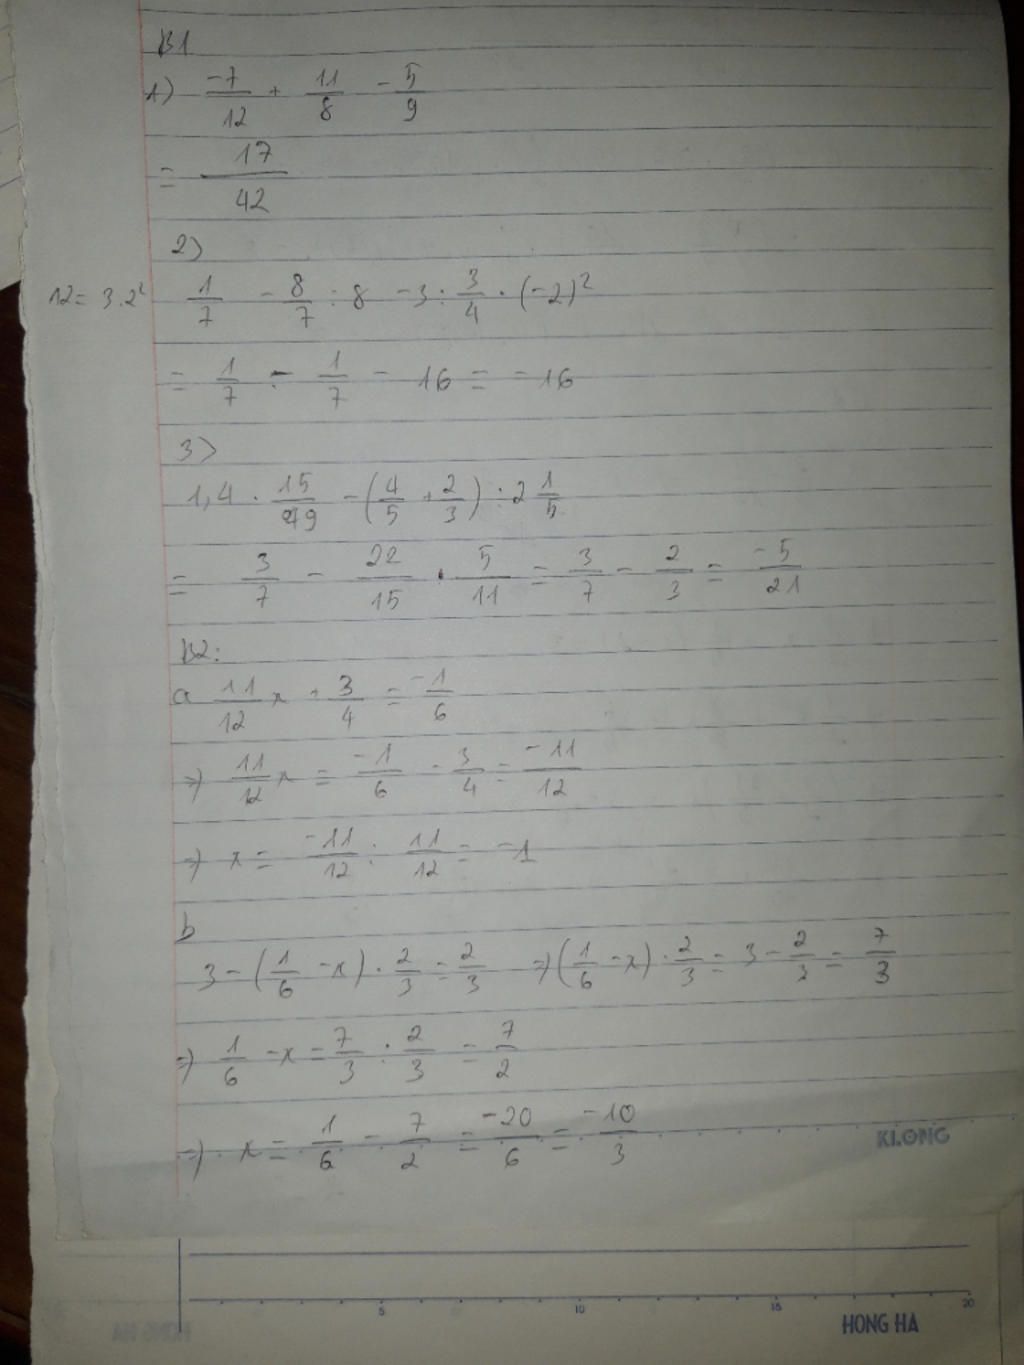 B1
1) -7/12 + 11/8 - 5/9
= 17/42
2)
12 = 3.2²
1/7 - 8/7 : 8 - 3 : 3/4 . (-2)²
= 1/7 - 1/7 - 16 = -16
3)
1,4 . 15/49 - (4/5 + 2/3) : 2 1/5
= 3/7 - 22/15 . 5/11 = 3/7 - 2/3 = -5/21
B2:
a 11/12 x + 3/4 = -1/6
=> 11/12 x = -1/6 - 3/4 = -11/12
=> x = -11/12 : 11/12 = -1
b
3 - (1/6 - x) . 2/3 = 2/3 => (1/6 - x) . 2/3 = 3 - 2/3 = 7/3
=> 1/6 - x = 7/3 : 2/3 = 7/2
=> x = 1/6 - 7/2 = -20/6 = -10/3
KLONG
5 10 15 20
HONG HA